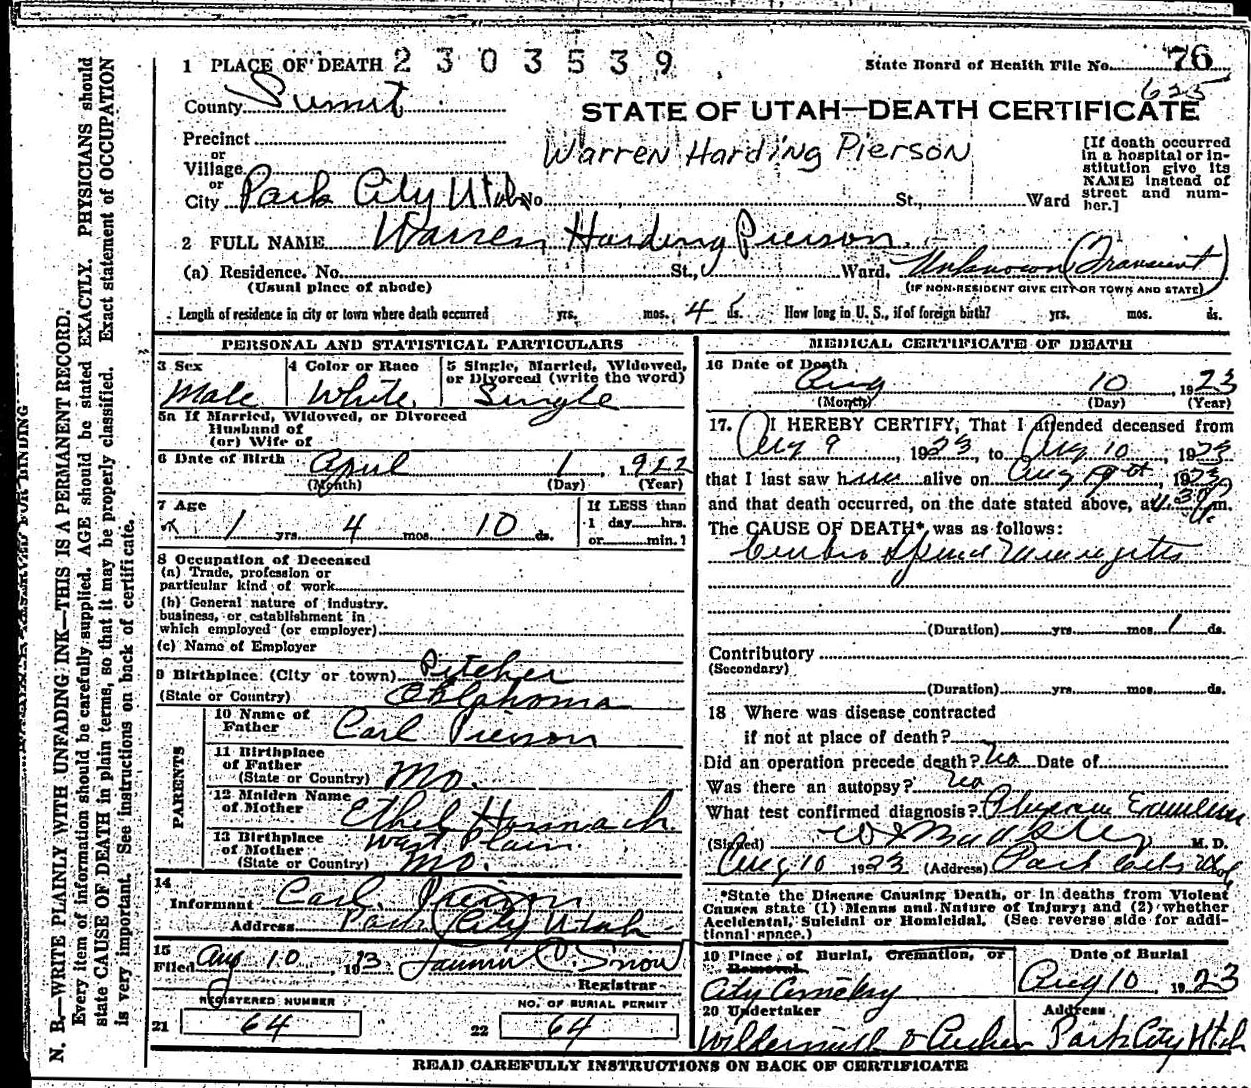 1 PLACE OF DEATH 2 3 0 3 5 3 9 State Board of Health File No. 76
625
County Summit
STATE OF UTAH—DEATH CERTIFICATE
Precinct
or
Village
or
City Park City Utah No. St., Ward
Warren Harding Pierson
[If death occurred
in a hospital or in-
stitution give its
NAME instead of
street and num-
ber.]
2 FULL NAME Warren Harding Pierson
(a) Residence. No. St., Ward. Unknown (Transient)
(Usual place of abode) (IF NON-RESIDENT GIVE CITY OR TOWN AND STATE)
Length of residence in city or town where death occurred yrs. mos. 4 ds. How long in U. S., if of foreign birth? yrs. mos. ds.
PERSONAL AND STATISTICAL PARTICULARS
3 Sex
Male
4 Color or Race
White
5 Single, Married, Widowed,
or Divorced (write the word)
Single
5a If Married, Widowed, or Divorced
Husband of
(or) Wife of
6 Date of Birth April 1, 1922
(Month) (Day) (Year)
7 Age
1 yrs. 4 mos. 10 ds.
If LESS than
1 day hrs.
or min.?
8 Occupation of Deceased
(a) Trade, profession or
particular kind of work
(b) General nature of industry,
business, or establishment in
which employed (or employer)
(c) Name of Employer
9 Birthplace (City or town) Pitcher
(State or Country) Oklahoma
PARENTS
10 Name of
Father Carl Pierson
11 Birthplace
of Father
(State or Country) Mo.
12 Maiden Name
of Mother Ethel
13 Birthplace
of Mother West Plain
(State or Country) Mo.
14
Informant Carl Pierson
Address Park City Utah
15
Filed Aug 10, 1923 Snow
Registrar
REGISTERED NUMBER
21 64
NO. OF BURIAL PERMIT
22 64
MEDICAL CERTIFICATE OF DEATH
16 Date of Death
Aug 10, 1923
(Month) (Day) (Year)
17. I HEREBY CERTIFY, That I attended deceased from
Aug 9, 1923, to Aug 10, 1923
that I last saw him alive on Aug, 1923
and that death occurred, on the date stated above, at m.
The CAUSE OF DEATH* was as follows:
Cerebro Spinal Meningitis
(Duration) yrs. mos. 1 ds.
Contributory
(Secondary)
(Duration) yrs. mos. ds.
18 Where was disease contracted
if not at place of death?
Did an operation precede death? No Date of
Was there an autopsy? No
What test confirmed diagnosis?
(Signed) M. D.
Aug 10 1923 (Address) Park City Utah
*State the Disease Causing Death, or in deaths from Violent
Causes state (1) Means and Nature of Injury; and (2) whether
Accidental, Suicidal or Homicidal. (See reverse side for addi-
tional space.)
19 Place of Burial, Cremation, or
Removal
City Cemetery
Date of Burial
Aug 10, 1923
20 Undertaker
Address
Park City Utah
READ CAREFULLY INSTRUCTIONS ON BACK OF CERTIFICATE
N. B.—WRITE PLAINLY WITH UNFADING INK—THIS IS A PERMANENT RECORD.
Every item of information should be carefully supplied. AGE should be stated EXACTLY. PHYSICIANS should
state CAUSE OF DEATH in plain terms, so that it may be properly classified. Exact statement of OCCUPATION
is very important. See instructions on back of certificate.